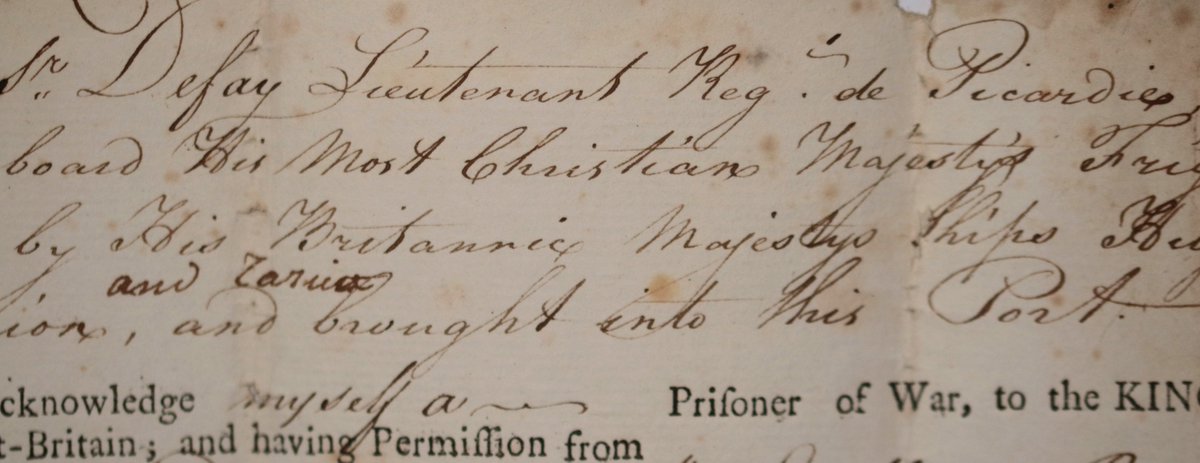 Sr. Defay Lieutenant Reg.n de Picardie
board His Most Christian Majesty's Frig
by His Britannic Majestys Ships
and
ion, and brought into this Port.
cknowledge myself a Priſoner of War, to the KING
t-Britain; and having Permiſſion from